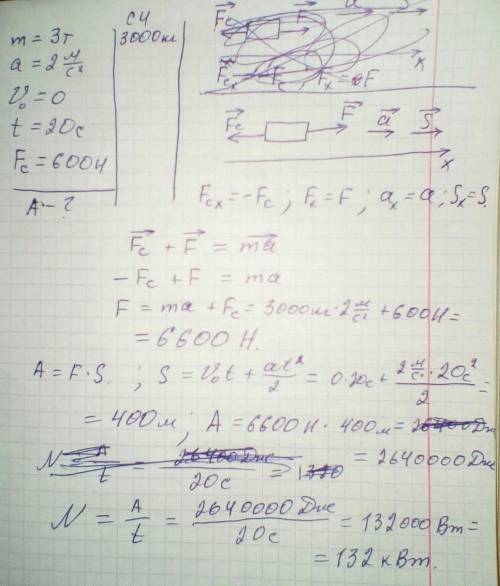 СИ
m = 3т
3000кг
a = 2 м/с²
V₀ = 0
t = 20с
Fc = 600Н
A - ?
Fc F a S
x
Fcx = -Fc ; Fx = F ; ax = a ; Sx = S.
Fc + F = ma
-Fc + F = ma
F = ma + Fc = 3000кг · 2 м/с² + 600Н =
= 6600 Н.
A = F · S. ; S = V₀t + at²/2 = 0·20с + 2 м/с² · 20с²/2 =
= 400м ; A = 6600Н · 400м =
= 2640000Дж
N = A/t = 2640000Дж/20с = 132000 Вт =
= 132 кВт.